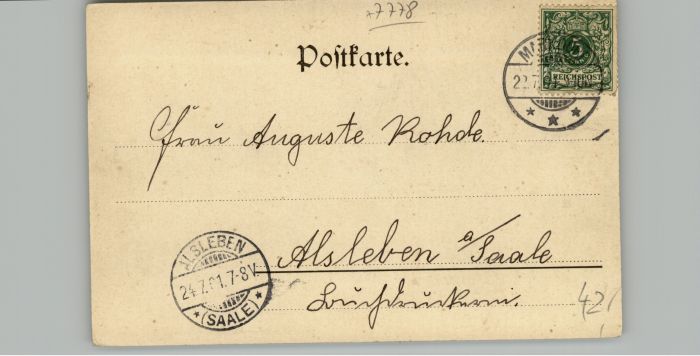 +7778
Postkarte.
5
REICHSPOST
22.7.
Frau Auguste Rohde.
Alsleben a/Saale
Buchdruckerei.
ALSLEBEN
24.7.01.7-8V
*(SAALE)*
42